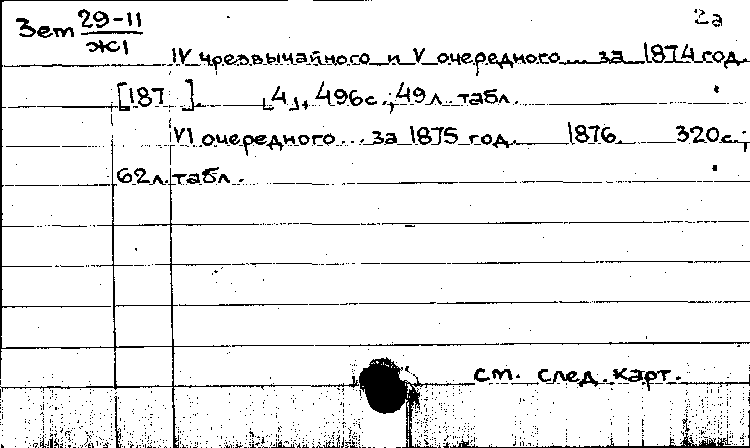 Зет 29-11 2а
Ж1
IV чрезвычайного и V очередного... за 1874 год.
[187 ]. [4], 496с.; 49л. табл.
VI очередного... за 1875 год. 1876. 320с.;
62л. табл.
см. след. карт.